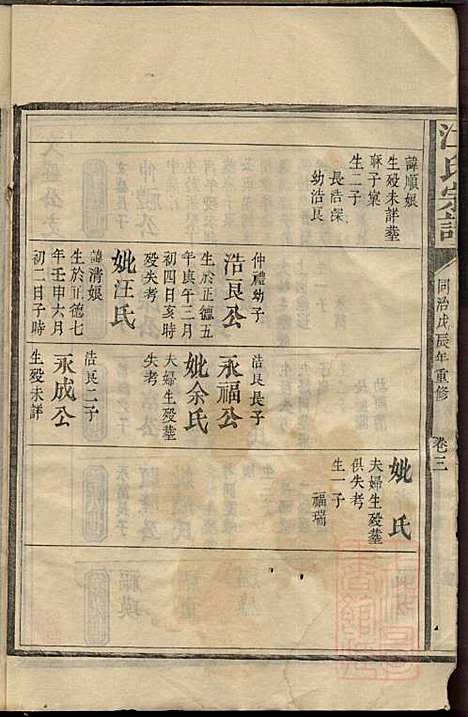 江氏宗譜
同治戊辰年重修
卷三
諱順娘
生殁未詳塟
麻子窠
生二子
長浩深
幼浩良
仲禮幼子
浩良公
生於正德五
年庚午三月
初四日亥時
殁失考
妣汪氏
諱清娘
生於正德七
年壬申六月
初二日子時
浩良長子
永福公
妣余氏
夫婦生殁塟
失考
浩良二子
永成公
生殁未詳
妣 氏
夫婦生殁塟
俱失考
生一子
福瑞